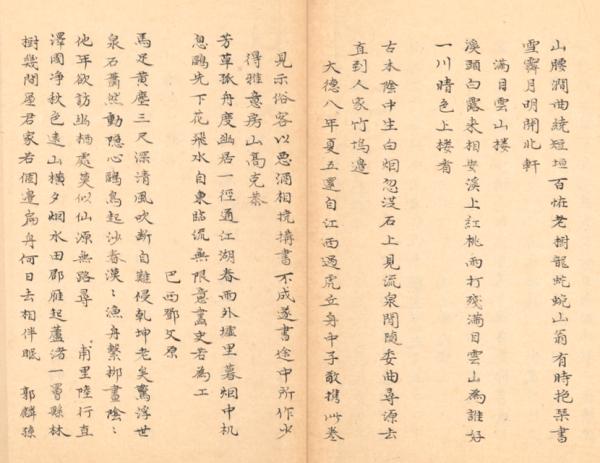 山腰澗曲繞短垣百怪老樹龍蛇蜿山翁有時抱琴書
雪霽月明開北軒
滿目雲山樓
溪頭白鷺來相安溪上紅桃雨打殘滿目雲山為誰好
一川晴色上樓看
古木陰中生白烟忽從石上見流泉閒隨委曲尋源去
直到人家竹塢邊
大德八年夏五還自江西過虎丘身中子敬携此卷
見示俗客以惡酒相撓構書不成遂書途中所作少
得雅意房山高克恭
芳草孤舟度幽居一徑通江湖春雨外墟里暮烟中机
息鷗先下花飛水自東臨流無限意畫史若為工
巴西鄧文原
馬足黃塵三尺深清風吹斷自難侵乾坤老矣驚浮世
泉石蕭然動隱心鷗鳥起沙春漠漠漁舟繫柳晝陰陰
他年欲訪幽栖處莫似仙源無路尋　甫里陸行直
澤國净秋色遠山橫夕烟水田郡雁起蘆渚一罾懸林
樹幾間屋君家若個邊扁舟何日去相伴眠　郭麟孫